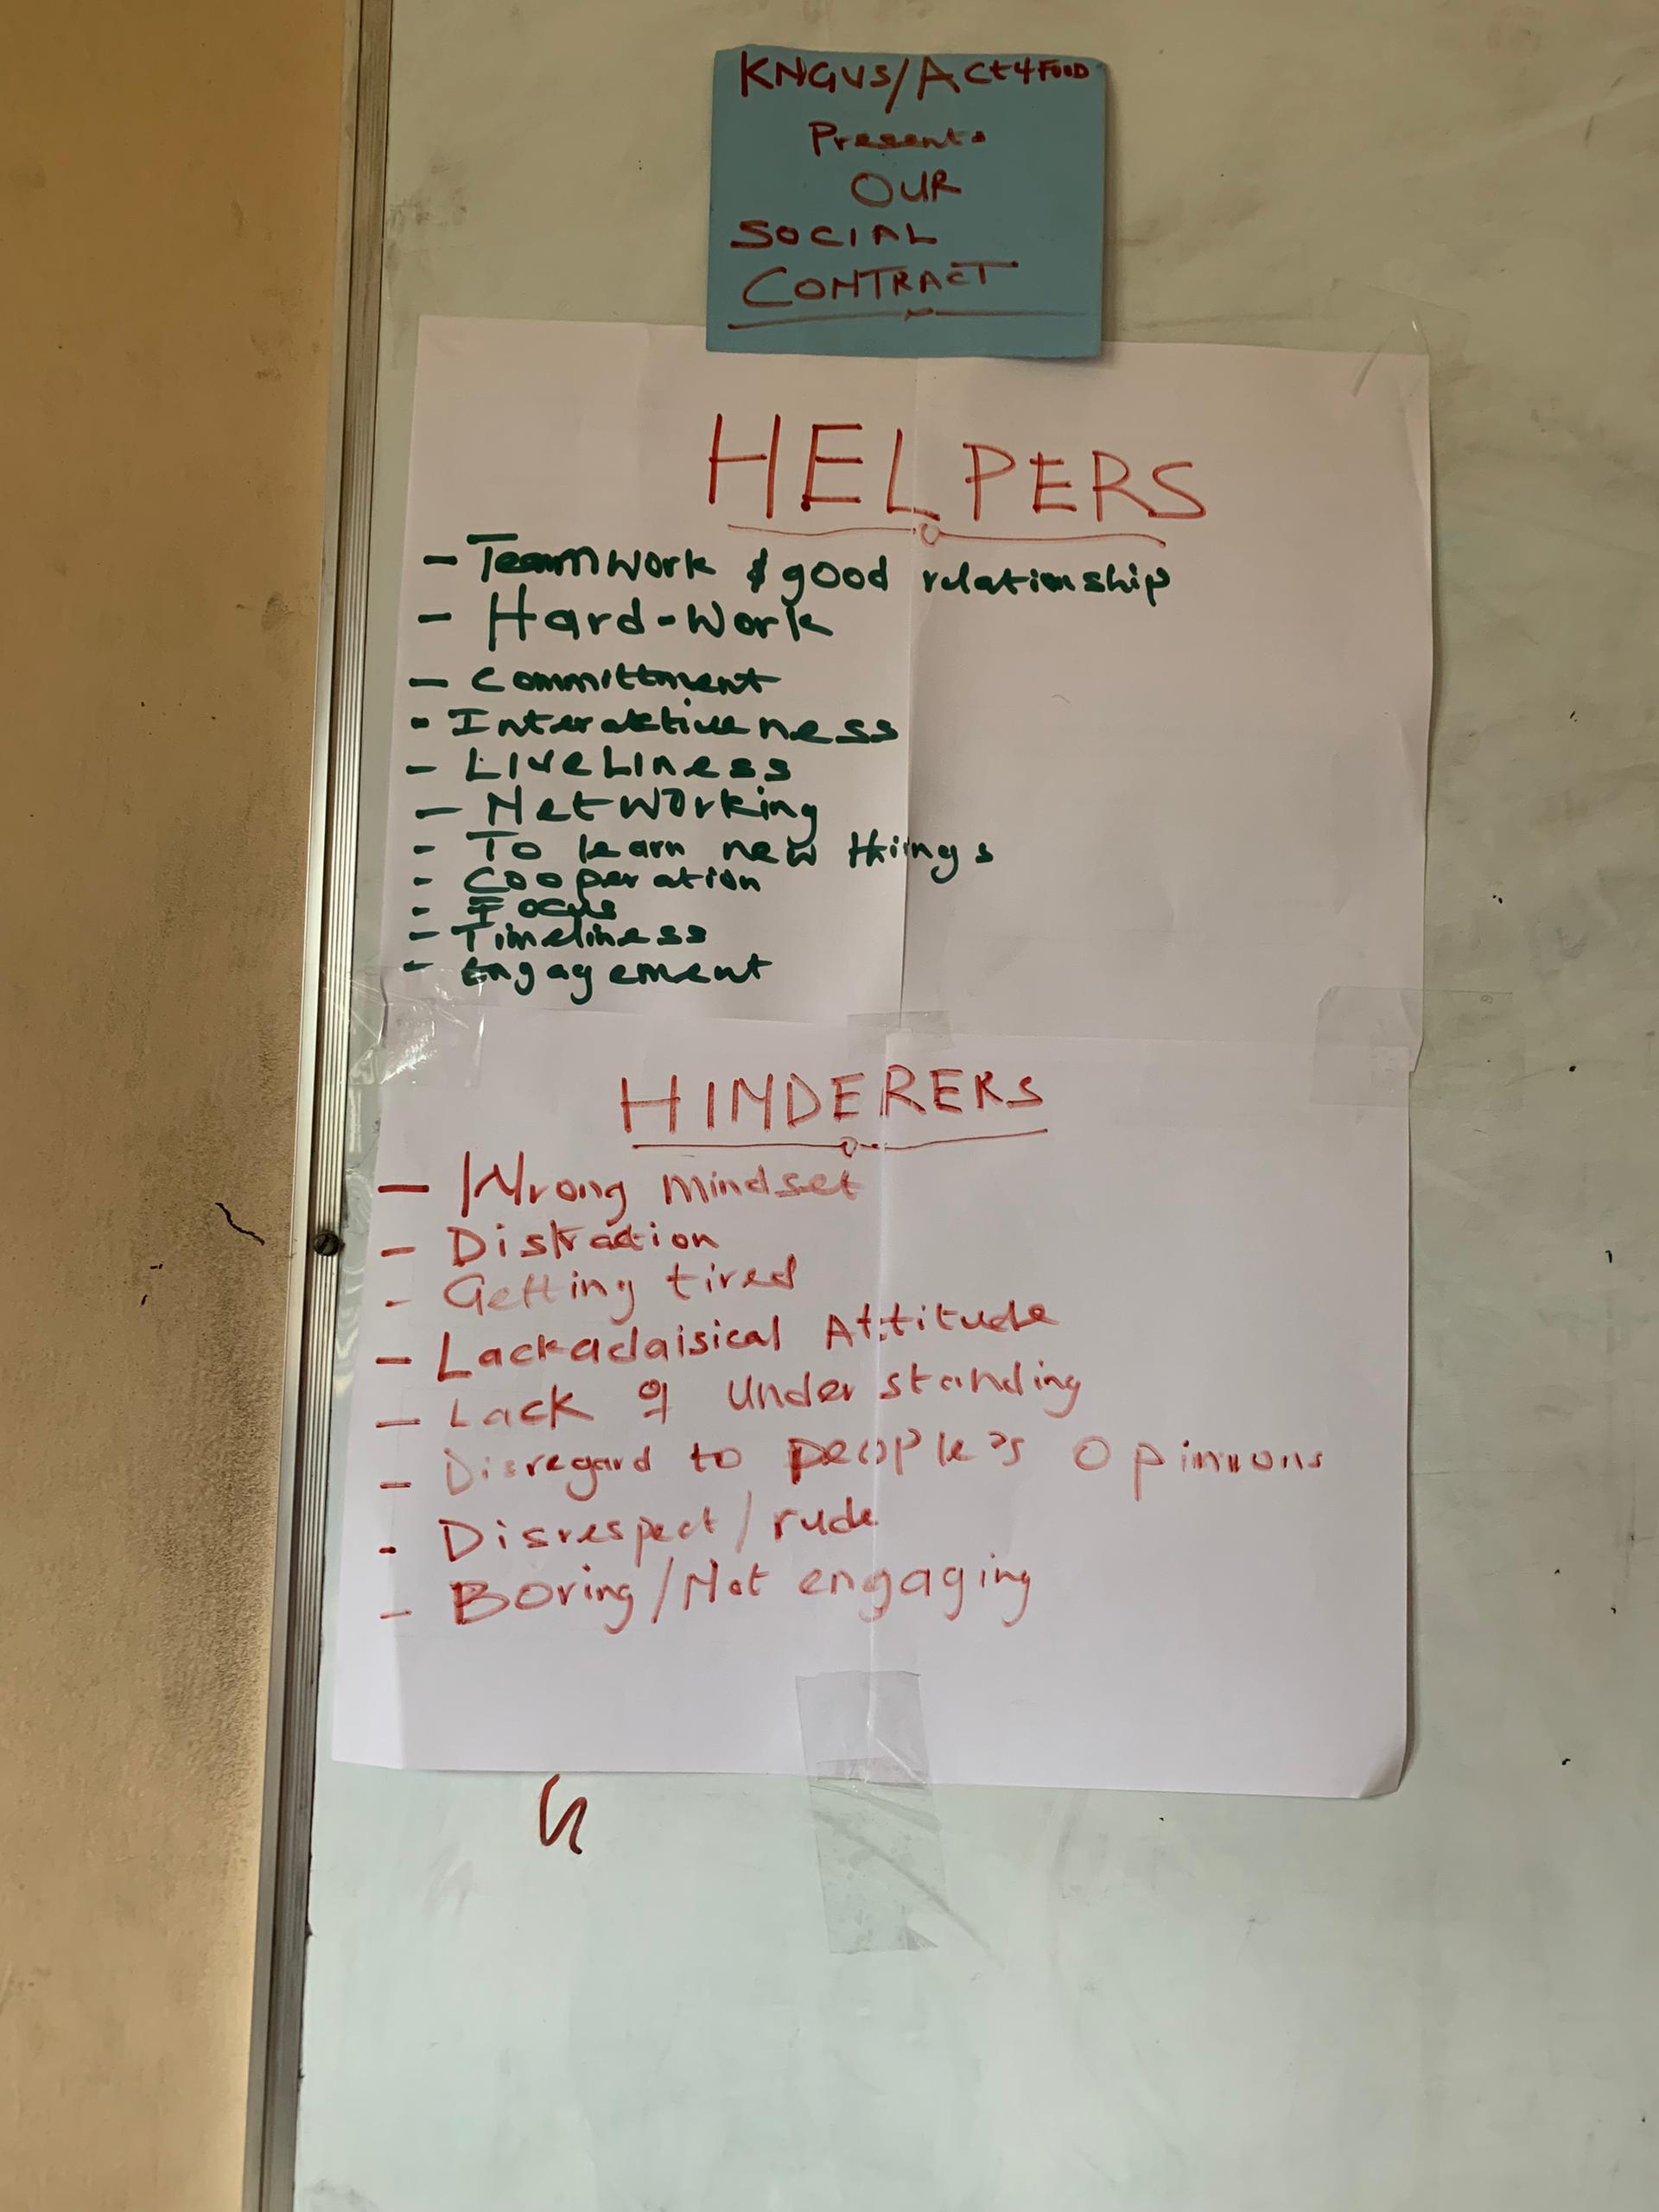 KNGVS/Act4Food
Presents
OUR
SOCIAL
CONTRACT
HELPERS
- Teamwork & good relationship
- Hard-Work
- Committment
- Interaktiveness
- LiveLiness
- Networking
- To learn new things
- Cooperation
- Focus
- Timeliness
- Engagement
HINDERERS
- Wrong mindset
- Distraction
- Getting tired
- Lackadaisical Attitude
- Lack of Understanding
- Disregard to people's Opinions
- Disrespect/rude
- Boring/Not engaging